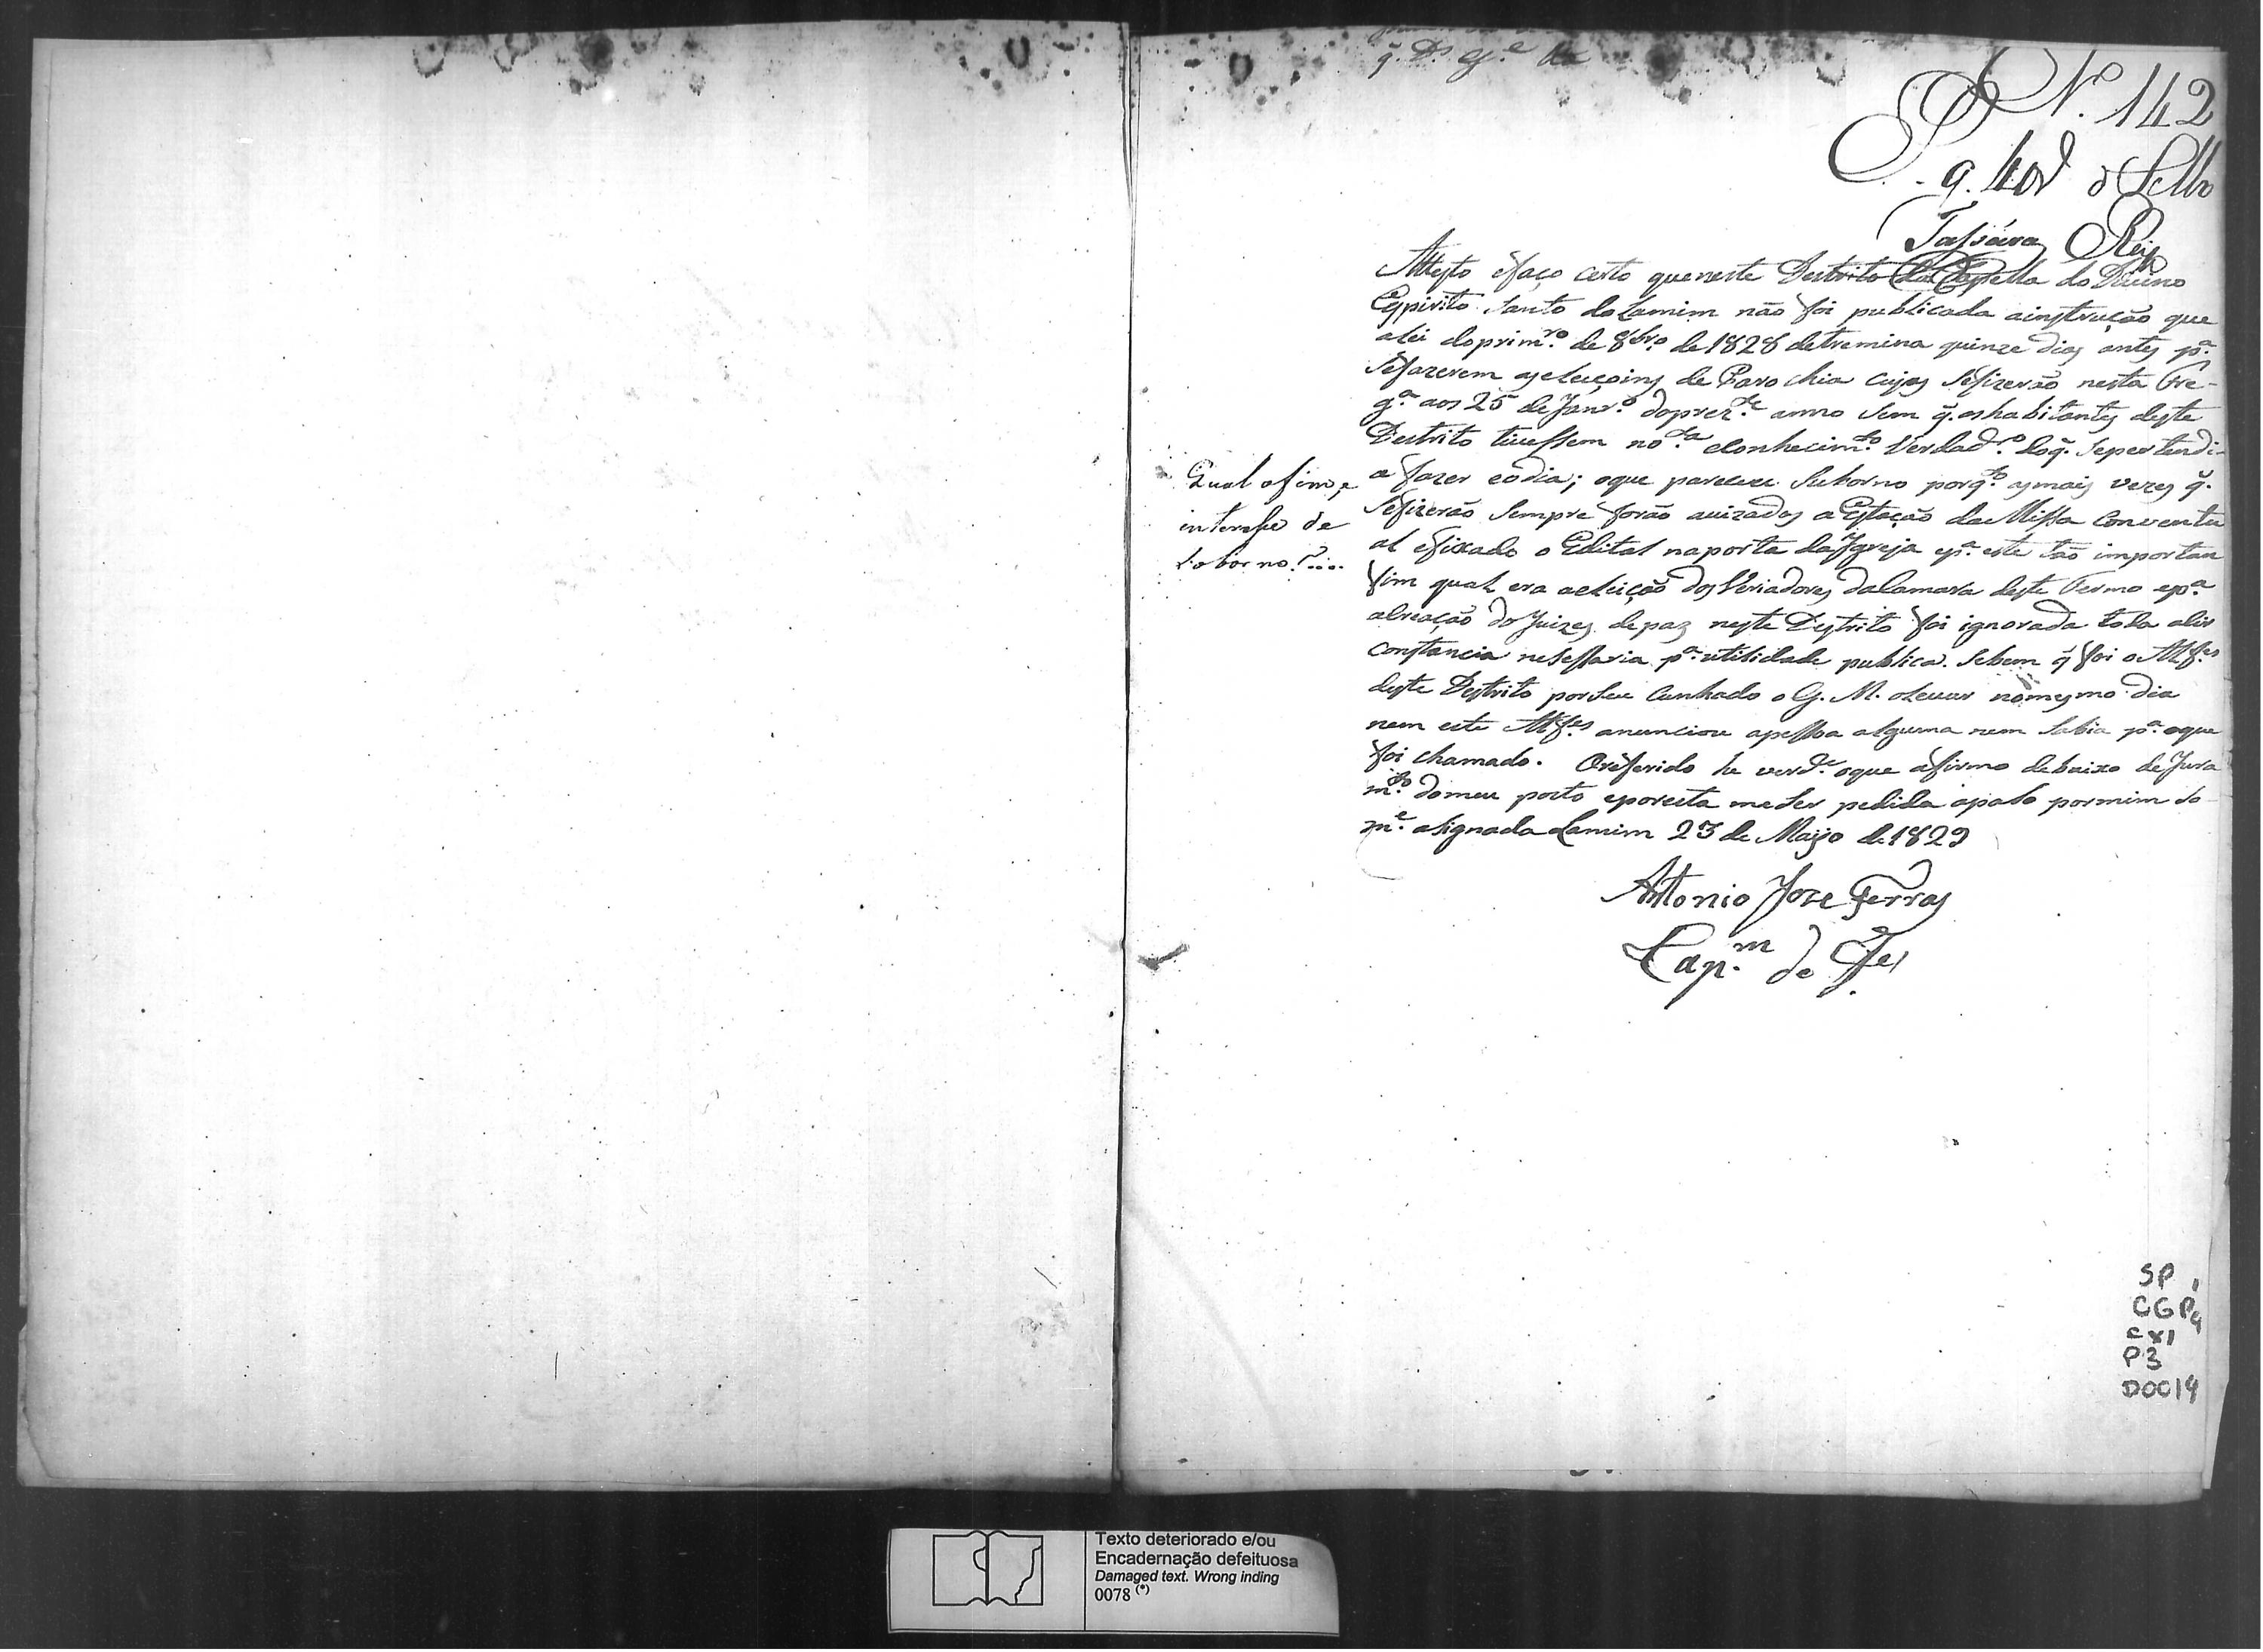 q̃. D.s g.e
N.º 142
P. g. 40 d Sello
Tassára Reis
Attesto efaço certo queneste Destrito da Capella do Divino
Espirito Santo do Lamim não foi publicada ainstrução que
alei doprimr.º de 8br.º de 1828 detremina quinze dias antes p.ª
sefazerem aseleiçoins de Parochia cujas sefizerão nesta Fre-
g.ª aos 25 de Janr.º doprez.te anno sem q̃. oshabitantes deste
Destrito tivessem no.ta eConhecim.to Verdad.ro doq̃. sepertendi-
a fazer eodia; oque parece Suborno porq.to asmais vezes q̃.
sefizerão sempre forão auizados a Estação da Missa Conventu
al efixado o Edital naporta da Igreja ep.ª este tão importan
fim qual era aeleição dos Veriadores daCamara deste Termo ep.ª
aCreação do Juizes depaz neste Destrito foi ignorada toda aCir
constancia nesessaria p.ª utilidade publica. Sebem q̃ foi o Alf.es
deste Destrito porseu Cunhado o G. M. oLevar nomesmo dia
nem este Alf.es anunciou apessoa alguma nem sabia p.ª oque
foi chamado. Oreferido he verd.e oque afirmo debaixo de Jura
m.to domeu posto eporesta meser pedida apaso pormim so
m.e asignada Lamim 23 de Maijo de 1829
Antonio Joze Ferras
Cap.m de
Qual ofim, e
interesse de
soborno?...
SP 1
CGP4
CX1
P3
D0014
Texto deteriorado e/ou
Encadernação defeituosa
Damaged text. Wrong inding
0078 (*)